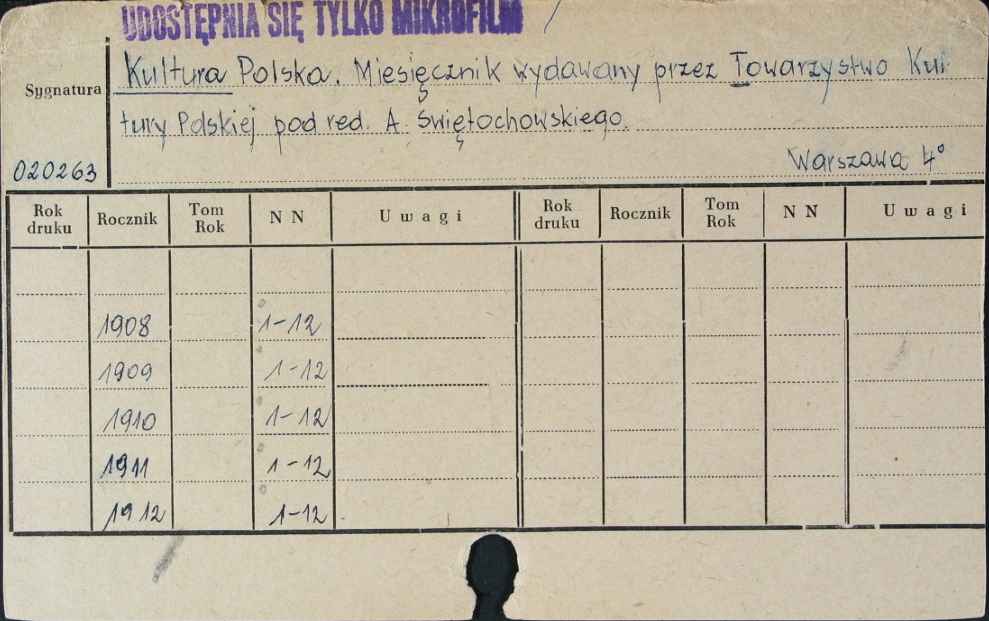 UDOSTĘPNIA SIĘ TYLKO MIKROFILM
Kultura Polska. Miesięcznik wydawany przez Towarzystwo Kul
Sygnatura
tury Polskiej pod red. A. Świętochowskiego.
020263
Warszawa 4°
Rok druku Rocznik Tom Rok N N Uwagi Rok druku Rocznik Tom Rok N N Uwagi
1908 1-12
1909 1-12
1910 1-12
1911 1-12
1912 1-12